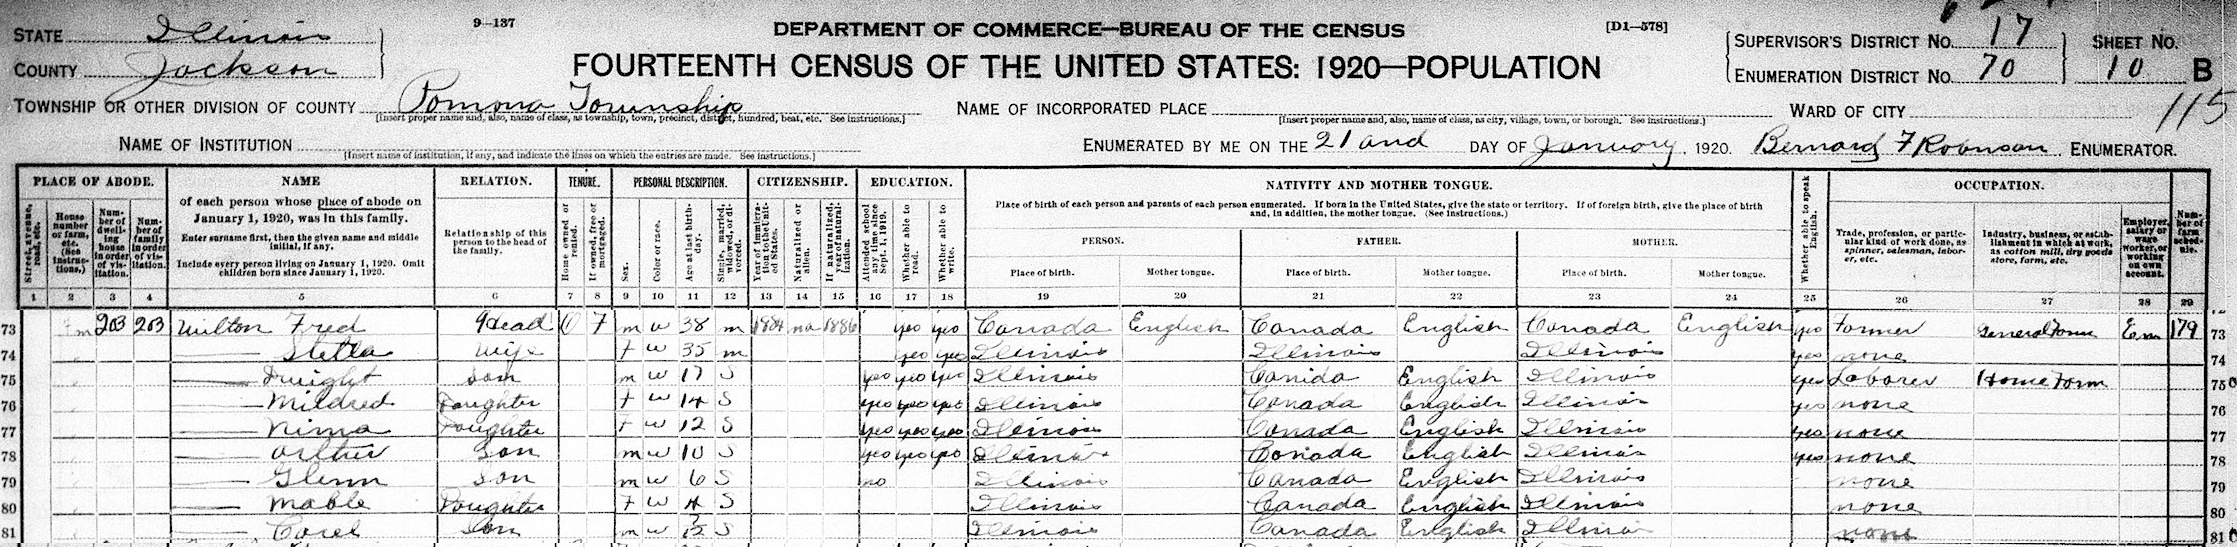 9—137
DEPARTMENT OF COMMERCE—BUREAU OF THE CENSUS
[D1—578]
STATE Illinois
COUNTY Jackson
FOURTEENTH CENSUS OF THE UNITED STATES: 1920—POPULATION
SUPERVISOR'S DISTRICT NO. 17
ENUMERATION DISTRICT NO. 70
SHEET NO. 10 B
115
TOWNSHIP OR OTHER DIVISION OF COUNTY Pomona Township
[Insert proper name and, also, name of class, as township, town, precinct, district, hundred, beat, etc. See instructions.]
NAME OF INCORPORATED PLACE
[Insert proper name and, also, name of class, as city, village, town, or borough. See instructions.]
WARD OF CITY
NAME OF INSTITUTION
[Insert name of institution, if any, and indicate the lines on which the entries are made. See instructions.]
ENUMERATED BY ME ON THE 21 and DAY OF January, 1920. Bernard F Robnson ENUMERATOR.
PLACE OF ABODE. NAME RELATION. TENURE. PERSONAL DESCRIPTION. CITIZENSHIP. EDUCATION. NATIVITY AND MOTHER TONGUE. OCCUPATION.
Street, avenue, road, etc.
House number or farm, etc. (See instructions.)
Number of dwelling house in order of visitation.
Number of family in order of visitation.
of each person whose place of abode on January 1, 1920, was in this family.
Enter surname first, then the given name and middle initial, if any.
Include every person living on January 1, 1920. Omit children born since January 1, 1920.
Relationship of this person to the head of the family.
Home owned or rented.
If owned, free or mortgaged.
Sex.
Color or race.
Age at last birthday.
Single, married, widowed, or divorced.
Year of immigration to the United States.
Naturalized or alien.
If naturalized, year of naturalization.
Attended school any time since Sept. 1, 1919.
Whether able to read.
Whether able to write.
Place of birth of each person and parents of each person enumerated. If born in the United States, give the state or territory. If of foreign birth, give the place of birth and, in addition, the mother tongue. (See instructions.)
PERSON. FATHER. MOTHER.
Place of birth. Mother tongue. Place of birth. Mother tongue. Place of birth. Mother tongue.
Whether able to speak English.
Trade, profession, or particular kind of work done, as spinner, salesman, laborer, etc.
Industry, business, or establishment in which at work, as cotton mill, dry goods store, farm, etc.
Employer, salary or wage worker, or working on own account.
Number of farm schedule.
1 2 3 4 5 6 7 8 9 10 11 12 13 14 15 16 17 18 19 20 21 22 23 24 25 26 27 28 29
73 Fm 203 203 Milton Fred Head O F m w 38 m 1884 na 1886 yes yes Canada English Canada English Canada English yes Farmer General Farm Em 179 73
74 Stella Wife F w 35 m yes yes Illinois Illinois Illinois yes none 74
75 Dwight Son m w 17 S yes yes yes Illinois Canida English Illinois yes Laborer Home Farm 75
76 Mildred Daughter F w 14 S yes yes yes Illinois Canada English Illinois yes none 76
77 Nima Daughter F w 12 S yes yes yes Illinois Canada English Illinois yes none 77
78 Arther Son m w 10 S yes yes yes Illinois Canada English Illinois yes none 78
79 Glenn Son m w 6 S no Illinois Canada English Illinois none 79
80 Mable Daughter F w 4 S Illinois Canada English Illinois none 80
81 Carel Son m w S Illinois Canada English Illinois none 81